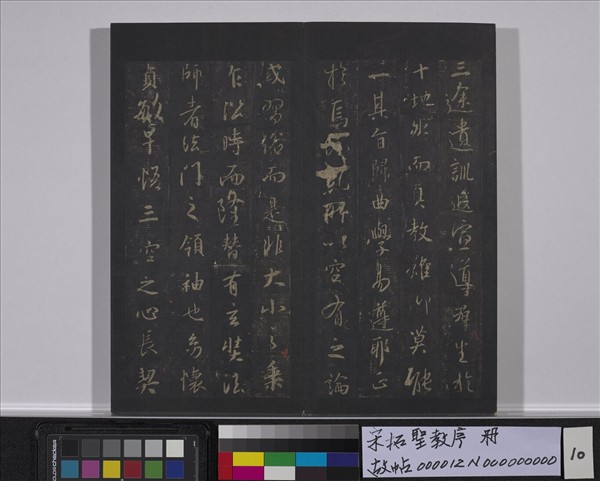 三途遺訓遐宣導群生於
十地然而真教難仰莫能
一其旨歸曲學易遵耶正
於焉紛糺所以空有之論
或習俗而是非大小之乘
乍沿時而隆替有玄奘法
師者法門之領袖也幼懷
貞敏早悟三空之心長契
宋拓聖教序 冊
故帖000012N000000000
10